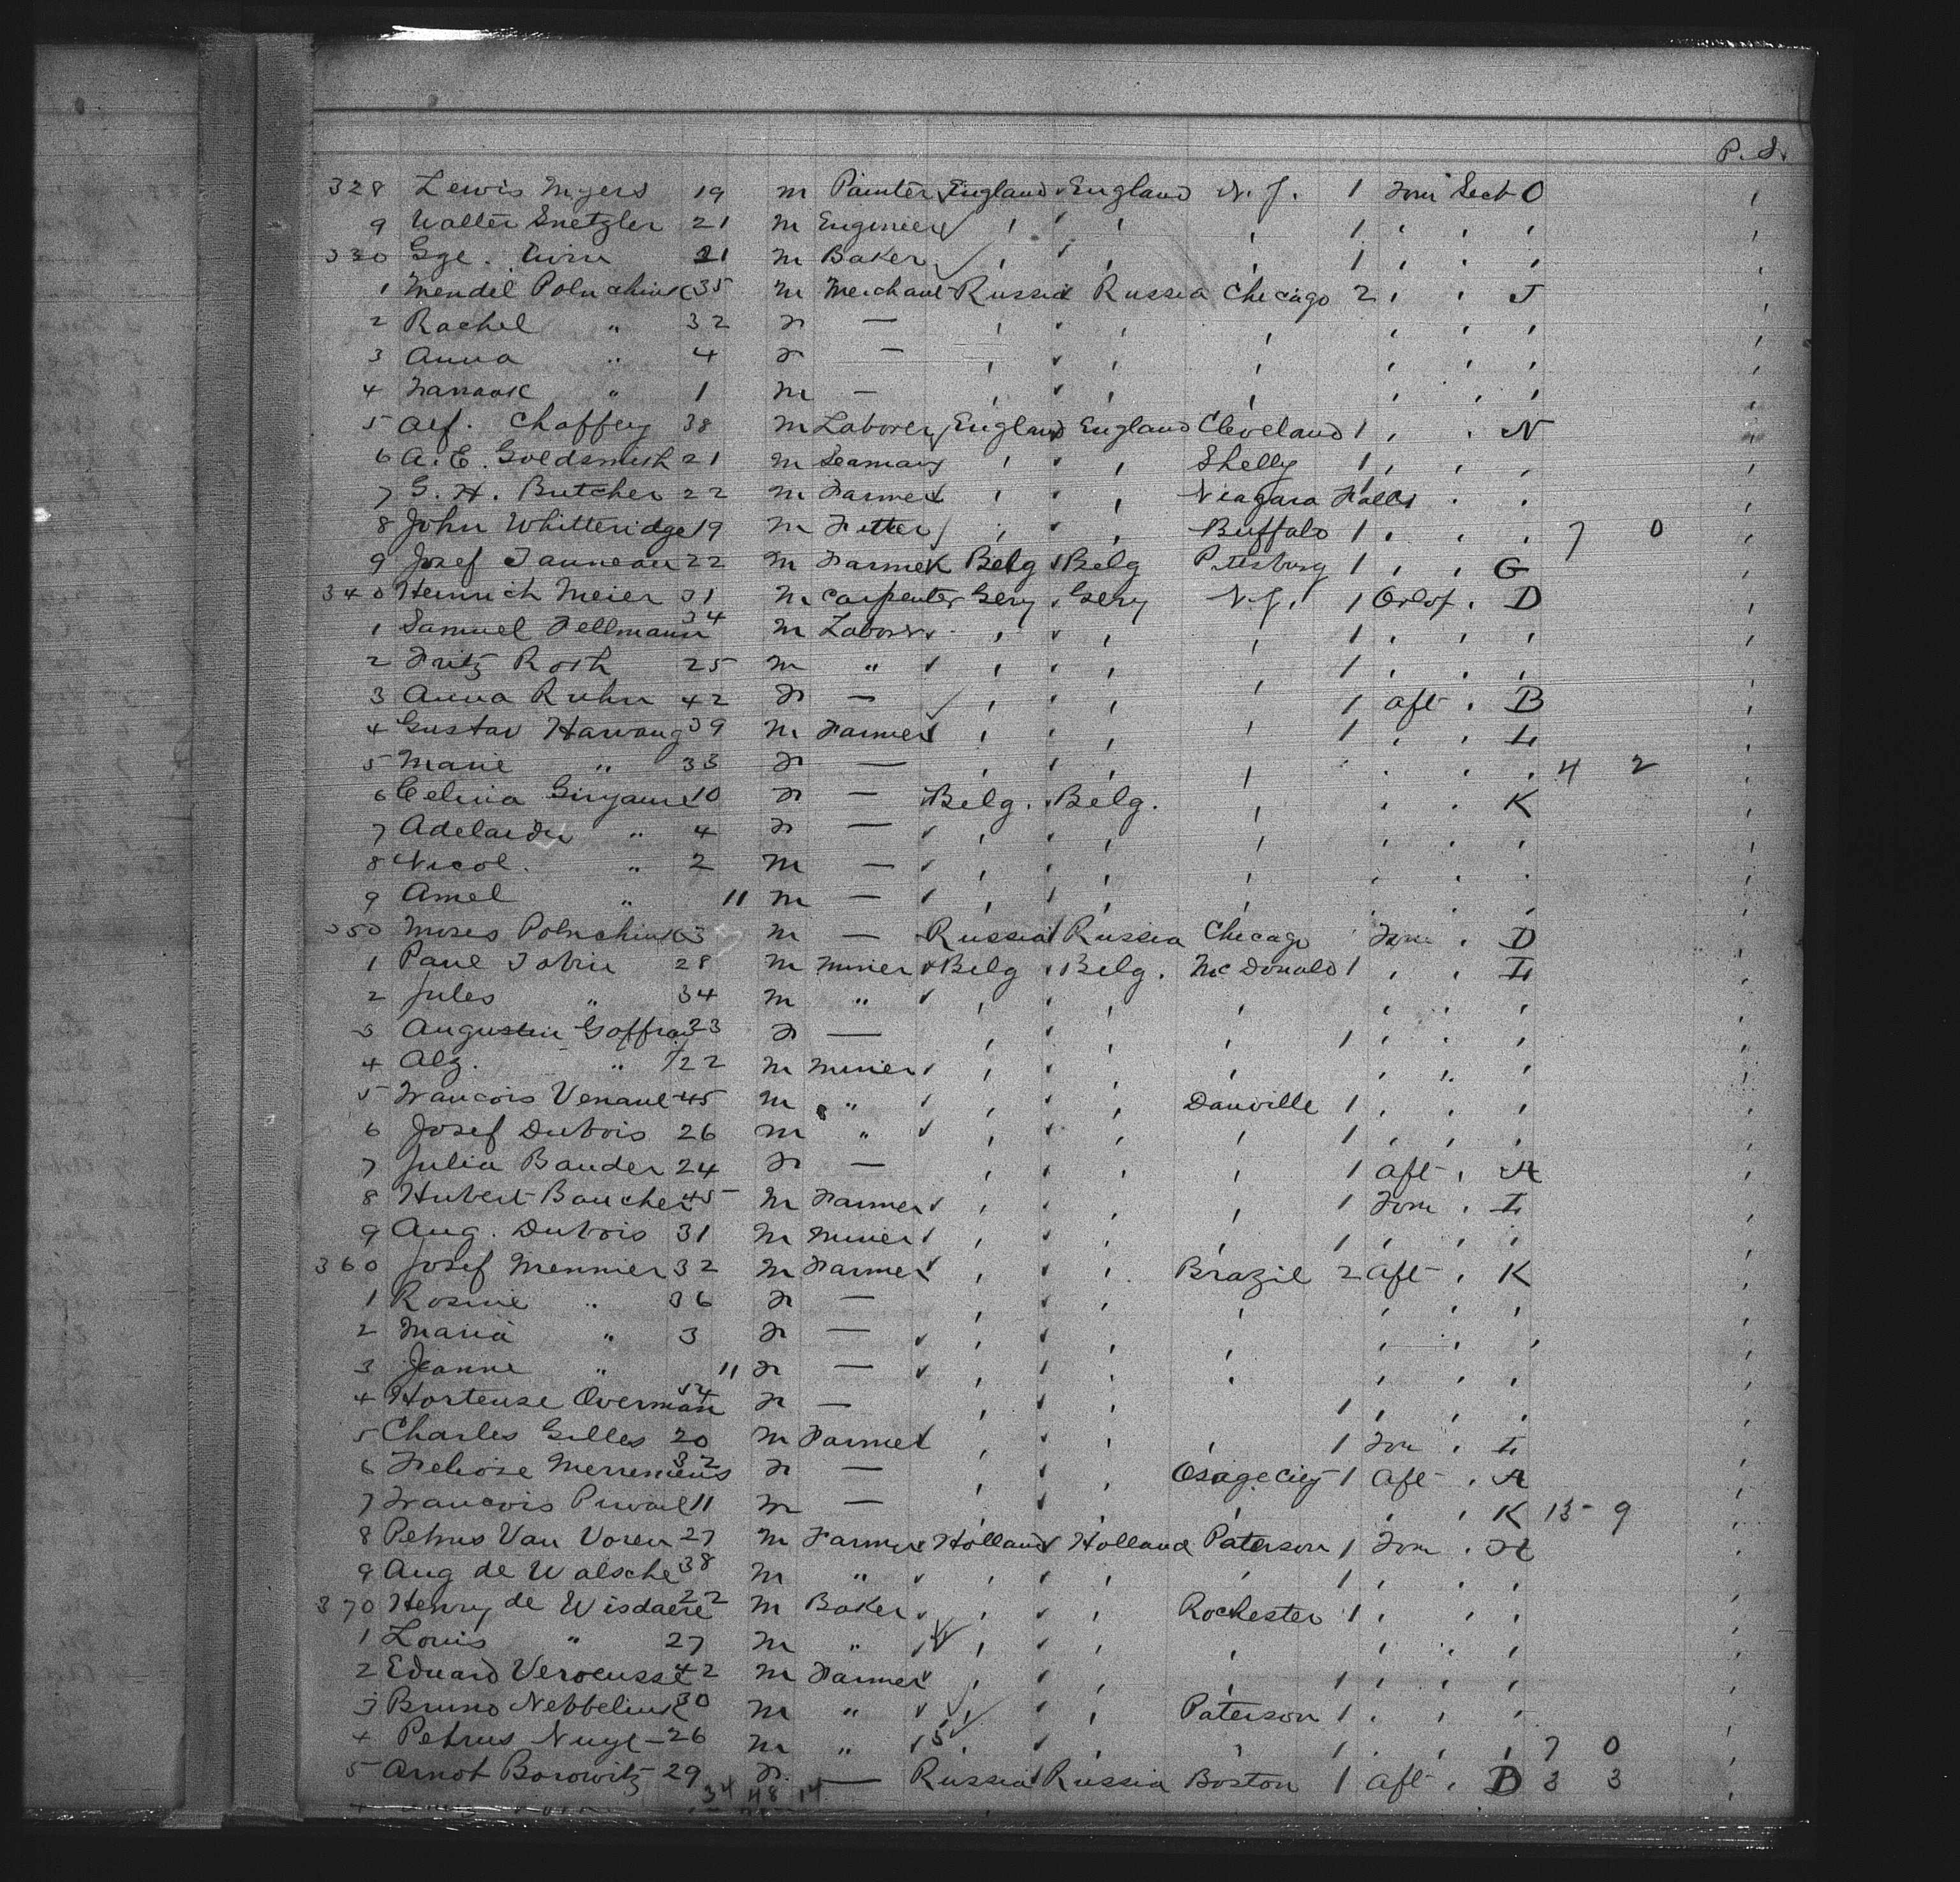 P. S.
328 Lewis Myers 19 m Painter England England N. J. 1 Forw Sect O
9 Walter Snetzler 21 m Engineer 1
330 Gge. 21 m Baker 1
1 Mendel Polnchiuk 35 m Merchant Russia Russia Chicago 2 J
2 Rachel " 32 F —
3 Anna " 4 F —
4 " 1 m —
5 Alf. Chaffey 38 m Laborer England England Cleveland 1 N
6 A. E. Goldsmith 21 m Seaman Shelly 1
7 G. H. Butcher 22 m Farmer Niagara Falls
8 John Whitteridge 19 m Fitter Buffalo 1 7 0
9 Josef Tanneau 22 m Farmer Belg Belg Pittsburg 1 G
340 Heinrich Meier 31 m Carpenter Gery Gery N. J. 1 Orlop D
1 Samuel Fellmann 34 m Laborer 1
2 Fritz Roth 25 m " 1
3 Anna Ruhn 42 F — 1 aft B
4 Gustav Harwang 39 m Farmer 1 L
5 Marie " 33 F — 4 2
6 Celina 10 F — Belg. Belg. K
7 Adelaide " 4 F —
8 Nicol. " 2 m —
9 Amel " 11 m —
350 Moses Polnchiuk 63 m — Russia Russia Chicago Forw D
1 Paul Tobie 28 m Miner Belg Belg. McDonald 1 L
2 Jules " 34 m "
3 Augustin Goffra 23 F — 1
4 Alz. " 22 m Miner
5 Francois Venant 45 m " Danville 1
6 Josef Dubois 26 m " 1
7 Julia Bauder 24 F — 1 aft A
8 Hubert Baucher 45 m Farmer 1 Forw L
9 Aug. Dubois 31 m Miner 1
360 Josef Mennier 32 m Farmer Brazil 2 aft K
1 Rosine " 36 F —
2 Maria " 3 F —
3 Jeanne " 11 F —
4 Hortense Overman 54 F — 1
5 Charles Gilles 20 m Farmer 1 For L
6 Merremeus 32 F — Osage City 1 aft A
7 Francois 11 m — K 13 9
8 Petrus Van Voren 27 m Farmer Holland Holland Paterson 1 Forw H
9 Aug de Walsche 38 m " 1
370 Henry de Wisdaere 22 m Baker Rochester 1
1 Louis " 27 m "
2 Eduard Verocusse 42 m Farmer 1
3 Bruno Nebbelink 30 m " Paterson 1
4 Petrus Nuyt 26 m " 5 1 7 0
5 Arnot Borowitz 29 F. — Russia Russia Boston 1 aft D 3 3
34 48 14